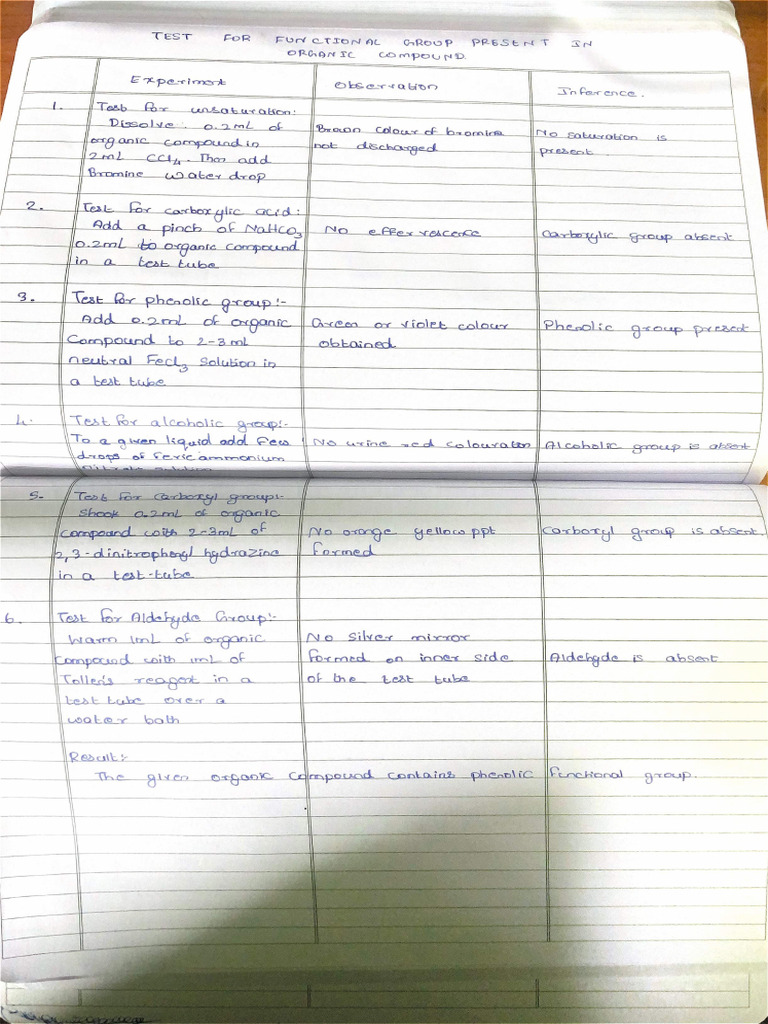 TEST FOR FUNCTIONAL GROUP PRESENT IN
ORGANIC COMPOUND
Experiment Observation Inference.
1. Test for unsaturation:
Dissolve 0.2mL of Brown colour of bromine No saturation is
organic compound in not discharged present.
2mL CCl4. Then add
Bromine water drop
2. Test for carboxylic acid:
Add a pinch of NaHCO3 No effervescence Carboxylic group absent
0.2mL to organic compound
in a test tube
3. Test for phenolic group:-
Add 0.2mL of organic Green or violet colour Phenolic group present
Compound to 2-3mL obtained
neutral FeCl3 solution in
a test tube
4. Test for alcoholic group:-
To a given liquid add few No urine red colouration Alcoholic group is absent
drops of feric ammonium
5. Test for Carboxyl group:-
Shook 0.2mL of organic
compound with 2-3mL of No orange yellow ppt Carboxyl group is absent.
2,3-dinitrophenyl hydrazine formed
in a test-tube
6. Test for Aldehyde Group:-
Warm 1mL of organic No silver mirror
compound with 1mL of formed on inner side Aldehyde is absent
Tollen's reagent in a of the test tube
test tube over a
water bath
Result:-
The given organic compound contains phenolic functional group.